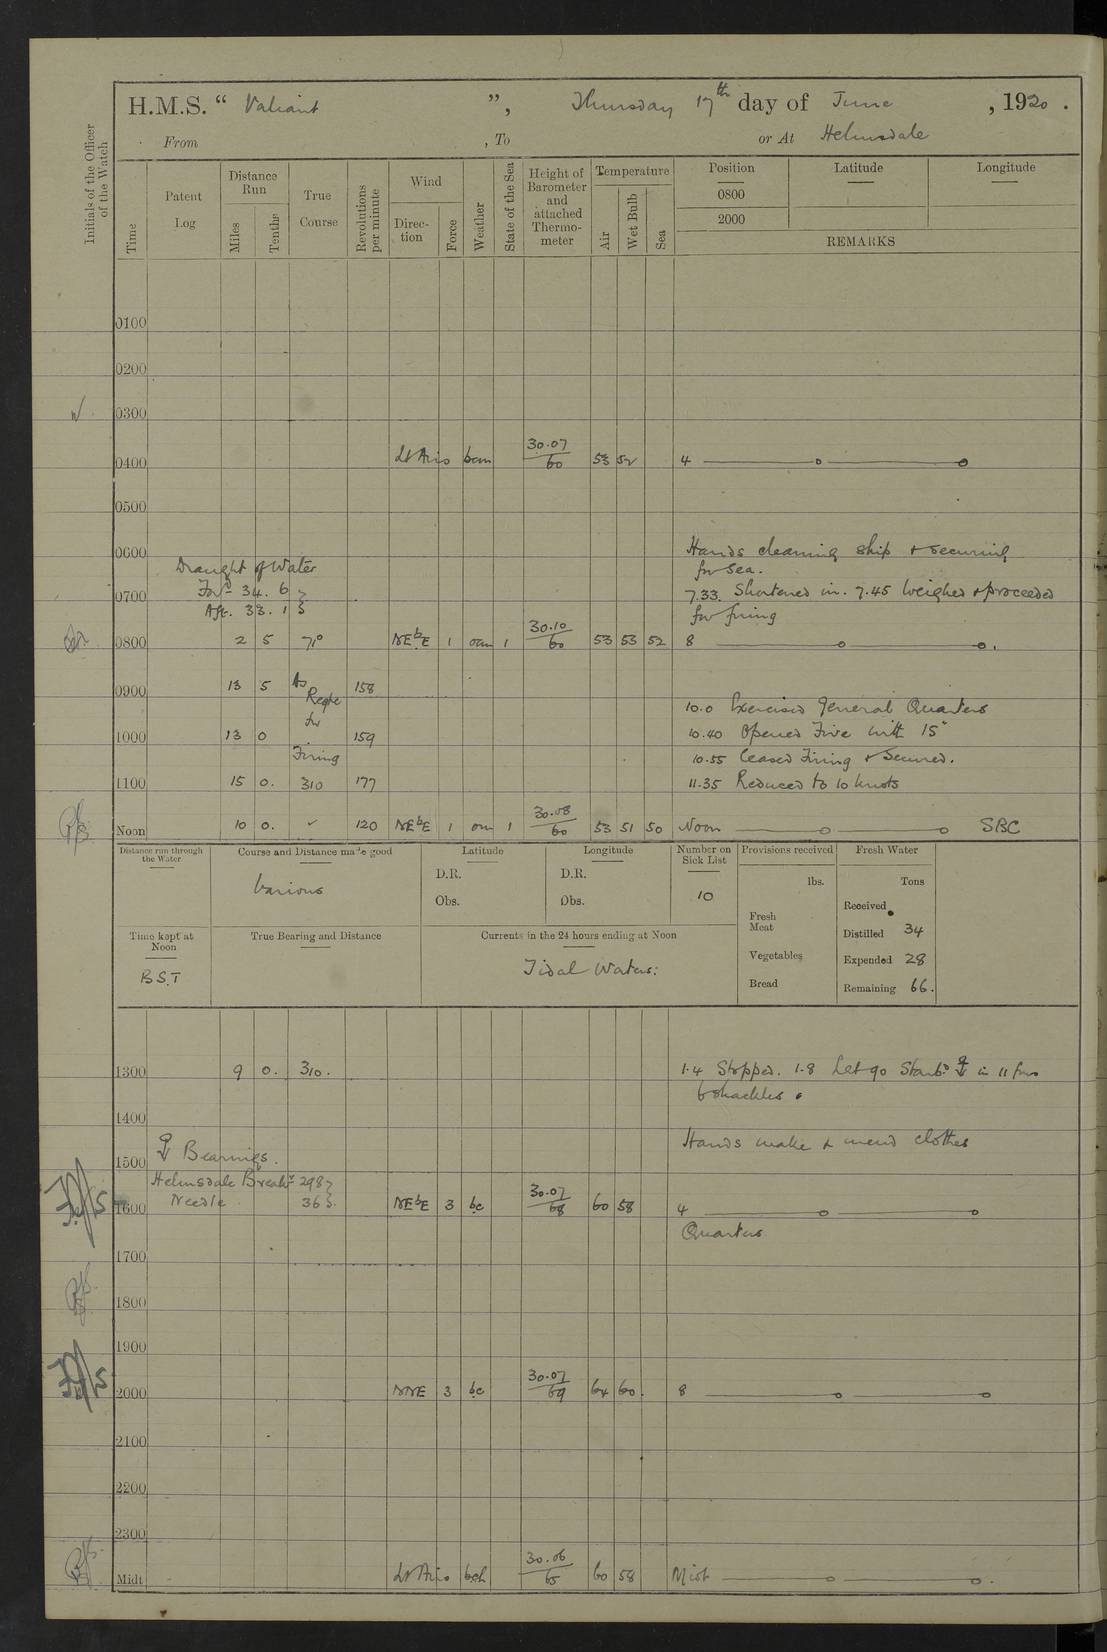 H.M.S. “ Valiant ”, Thursday 17th day of June , 1920 .
From , To or At Helmsdale
Initials of the Officer of the Watch
Time
Patent Log
Distance Run
Miles
Tenths
True Course
Revolutions per minute
Wind
Direction
Force
Weather
State of the Sea
Height of Barometer and attached Thermometer
Temperature
Air
Wet Bulb
Sea
Position
Latitude
Longitude
0800
2000
REMARKS
0100
0200
0300
0400 Lt Airs bcm 30.07/60 53 52 4
0500
0600 Hands cleaning ship & securing
for sea.
Draught of Water
Ford 34. 6
0700 7.33. Shortened in. 7.45 Weighed & proceeded
Aft. 33. 1 for firing
0800 2 5 71° NEbE 1 om 1 30.10/60 53 53 52 8
0900 13 5 As Reqte 158
for 10.0 Exercised General Quarters
1000 13 0 159 10.40 Opened Fire with 15"
Firing 10.55 Ceased Firing & Secured.
1100 15 0. 310 177 11.35 Reduced to 10 knots
Noon 10 0. ✓ 120 NEbE 1 om 1 30.08/60 53 51 50 Noon SBC
Distance run through the Water
Course and Distance made good
Various
Latitude
D.R.
Obs.
Longitude
D.R.
Obs.
Number on Sick List
10
Provisions received
lbs.
Fresh Meat
Vegetables
Bread
Fresh Water
Tons
Received
Distilled 34
Expended 28
Remaining 66.
Time kept at Noon
B.S.T
True Bearing and Distance
Currents in the 24 hours ending at Noon
Tidal Waters.
1300 9 0. 310. 1.4 Stopped. 1.8 Let go Starbd in 11 fms
6 shackles
1400
Hands make & mend clothes
Bearings.
1500
Helmsdale Breakr 298
Needle 36
1600 NEbE 3 bc 30.07/68 60 58 4
Quarters
1700
1800
1900
2000 NNE 3 bc 30.07/69 64 60. 8
2100
2200
2300
Midt Lt Airs bch 30.06/65 60 58 Midt